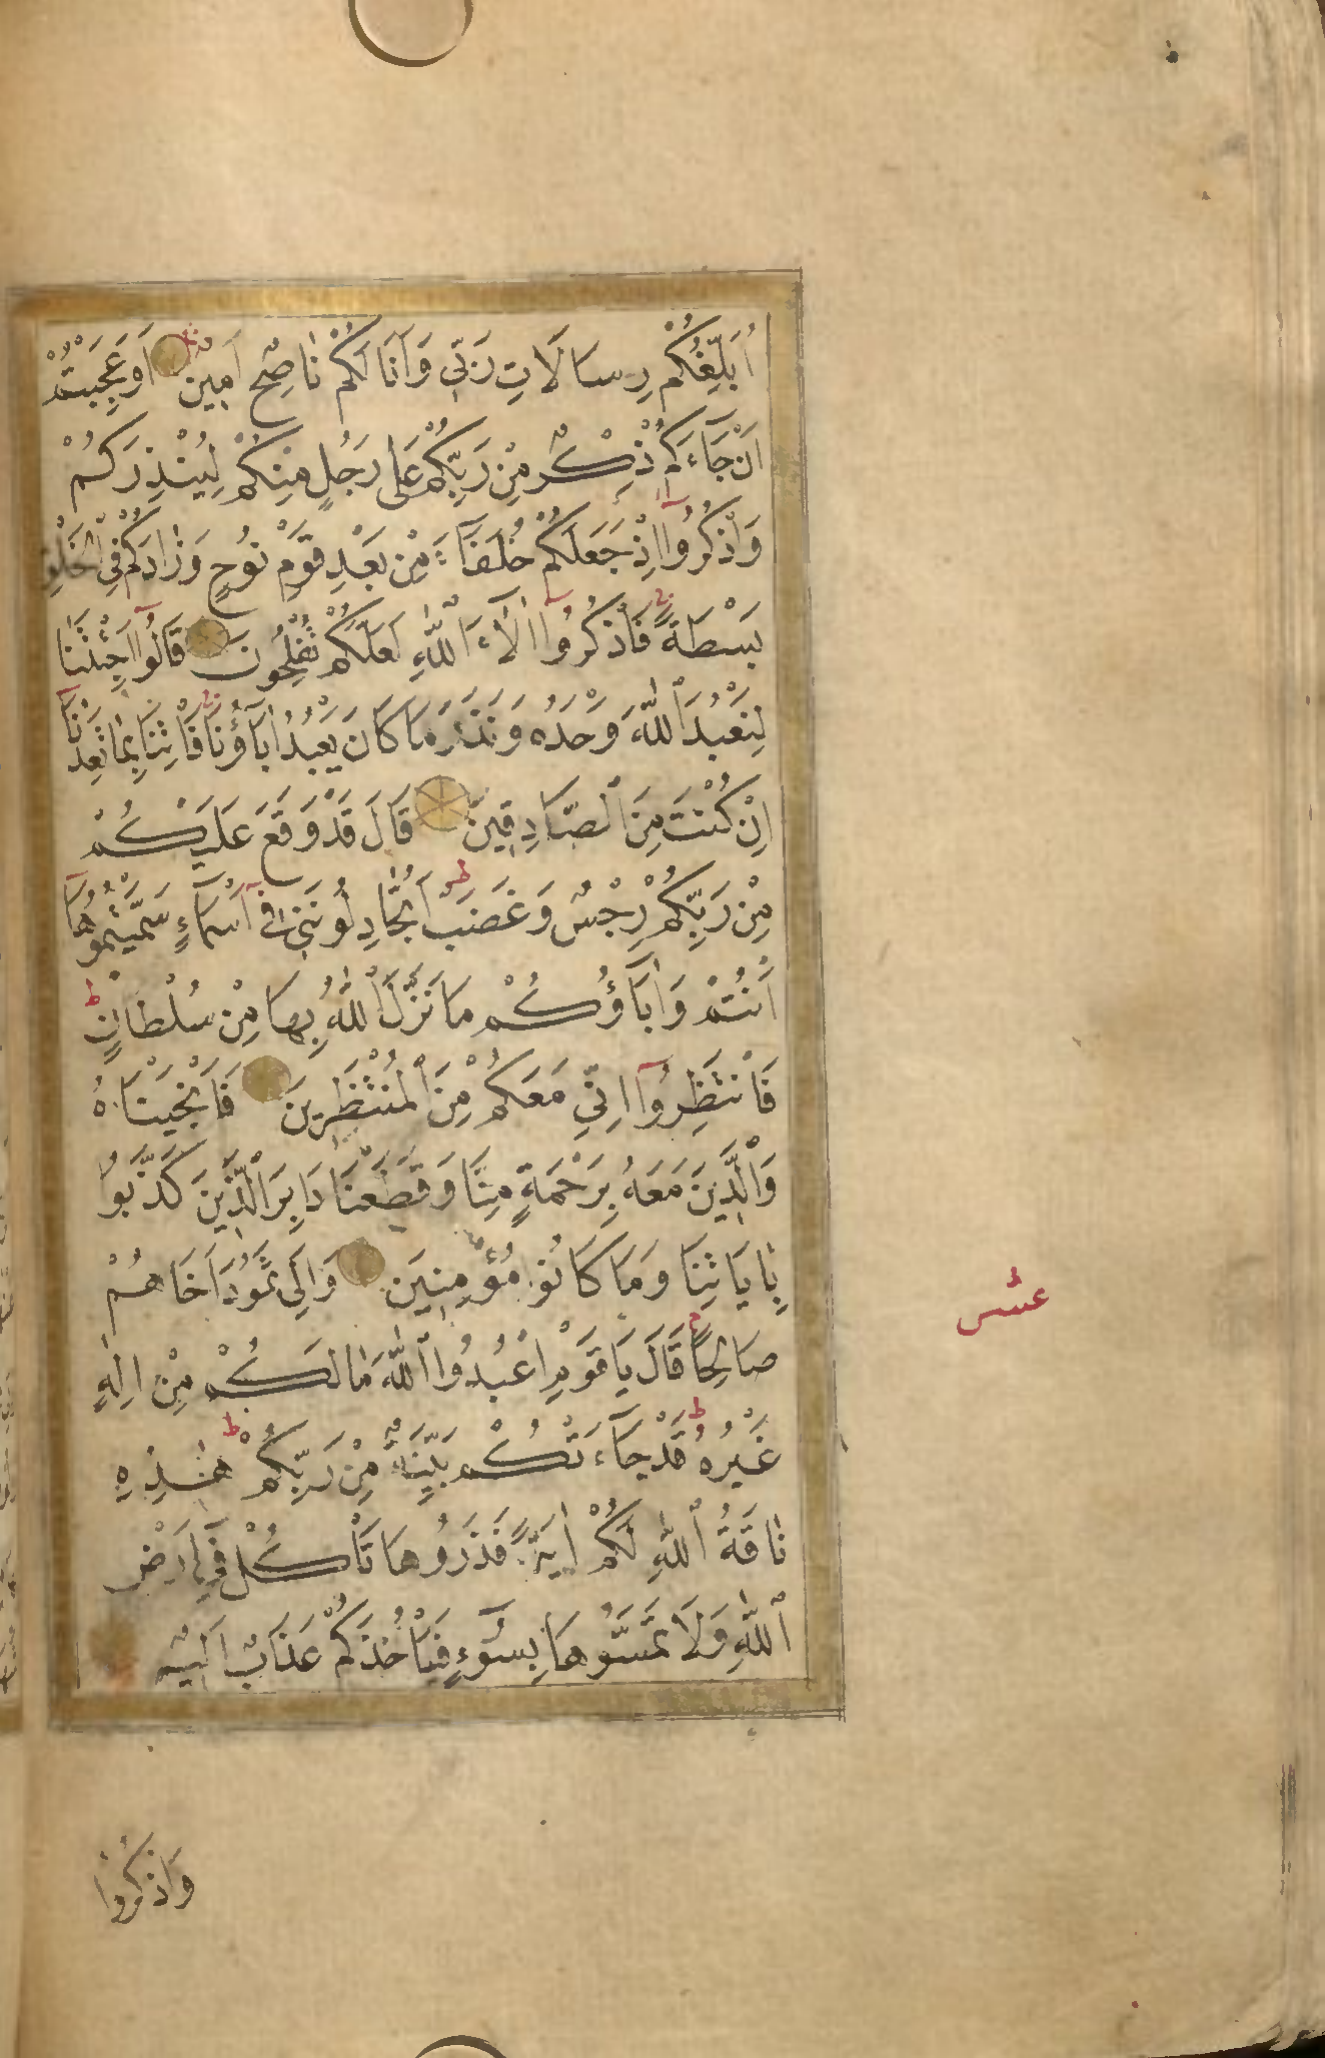 اُبَلِّغُكُمْ رِسَالَاتِ رَبِّي وَاَنَا۬ لَكُمْ نَاصِحٌ اَمِينٌ اَوَعَجِبْتُمْ
اَنْ جَٓاءَكُمْ ذِكْرٌ مِنْ رَبِّكُمْ عَلٰى رَجُلٍ مِنْكُمْ لِيُنْذِرَكُمْ
وَاذْكُرُٓوا اِذْ جَعَلَكُمْ خُلَفَٓاءَ مِنْ بَعْدِ قَوْمِ نُوحٍ وَزَادَكُمْ فِي الْخَلْقِ
بَسْطَةً فَاذْكُرُٓوا اٰلَٓاءَ اللّٰهِ لَعَلَّكُمْ تُفْلِحُونَ قَالُٓوا اَجِئْتَنَا
لِنَعْبُدَ اللّٰهَ وَحْدَهُ وَنَذَرَ مَا كَانَ يَعْبُدُ اٰبَٓاؤُ۬نَا فَاْتِنَا بِمَا تَعِدُنَٓا
اِنْ كُنْتَ مِنَ الصَّادِقِينَ قَالَ قَدْ وَقَعَ عَلَيْكُمْ
مِنْ رَبِّكُمْ رِجْسٌ وَغَضَبٌ اَتُجَادِلُونَنِي فِٓي اَسْمَٓاءٍ سَمَّيْتُمُوهَٓا
اَنْتُمْ وَاٰبَٓاؤُكُمْ مَا نَزَّلَ اللّٰهُ بِهَا مِنْ سُلْطَانٍ
فَانْتَظِرُٓوا اِنِّي مَعَكُمْ مِنَ الْمُنْتَظِرِينَ فَاَنْجَيْنَاهُ
وَالَّذِينَ مَعَهُ بِرَحْمَةٍ مِنَّا وَقَطَعْنَا دَابِرَ الَّذِينَ كَذَّبُوا
بِاٰيَاتِنَا وَمَا كَانُوا مُؤْمِنِينَ وَاِلٰى ثَمُودَ اَخَاهُمْ
صَالِحًا قَالَ يَا قَوْمِ اعْبُدُوا اللّٰهَ مَا لَكُمْ مِنْ اِلٰهٍ
غَيْرُهُ قَدْ جَٓاءَتْكُمْ بَيِّنَةٌ مِنْ رَبِّكُمْ هٰذِهِ
نَاقَةُ اللّٰهِ لَكُمْ اٰيَةً فَذَرُوهَا تَاْكُلْ فِٓي اَرْضِ
اللّٰهِ وَلَا تَمَسُّوهَا بِسُٓوءٍ فَيَاْخُذَكُمْ عَذَابٌ اَلِيمٌ
عشر
وَاذْكُرُوا